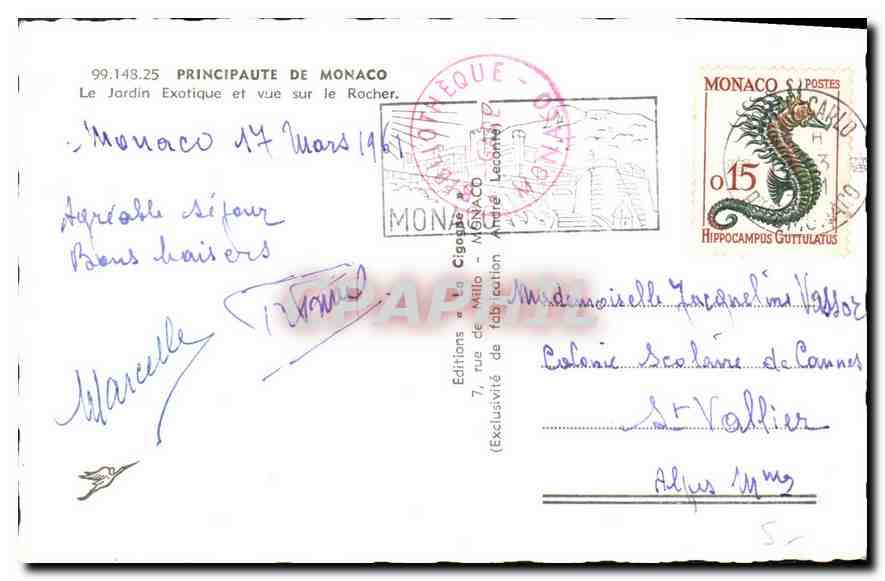 99.148.25 PRINCIPAUTE DE MONACO
Le Jardin Exotique et vue sur le Rocher.
Monaco 17 Mars 1961
Agréable séjour
Bons baisers
Marcelle
MONACO
Editions « La Cigogne »
7, rue de Millo - MONACO
(Exclusivité de fabrication André Leconte)
MONACO POSTES
0,15
HIPPOCAMPUS GUTTULATUS
CPAPHIL
Mademoiselle Jacqueline Vassor
Colonie Scolaire de Cannes
St Vallier
Alpes Mmes